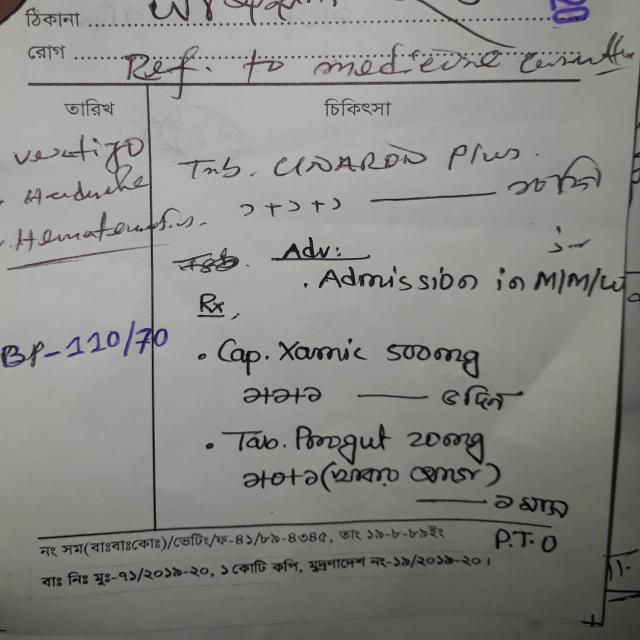 ঠিকানা
রোগ
Ref. to medicine
তারিখ
চিকিৎসা
vertigo
Headache
Hematemesis.
Tab. CINARON Plus.
১+১+১
Adv:
. Admission in M/M/W
Rx,
BP-110/70
• Cap. Xamic 500mg
১+১+১ — ৫ দিন
• Tab. Progut 20mg
১+০+১ (খাবার আগে)
— ১ মাস
P.T.O
নং সম(বাঃবাঃকোঃ)/ভেটিং/ফ-৪১/৮৯-৪৩৪৫, তাং ১৯-৮-৮৯ইং
বাঃ নিঃ মুঃ-৭১/২০১৯-২০, ১ কোটি কপি, মুদ্রণাদেশ নং-১৯/২০১৯-২০।